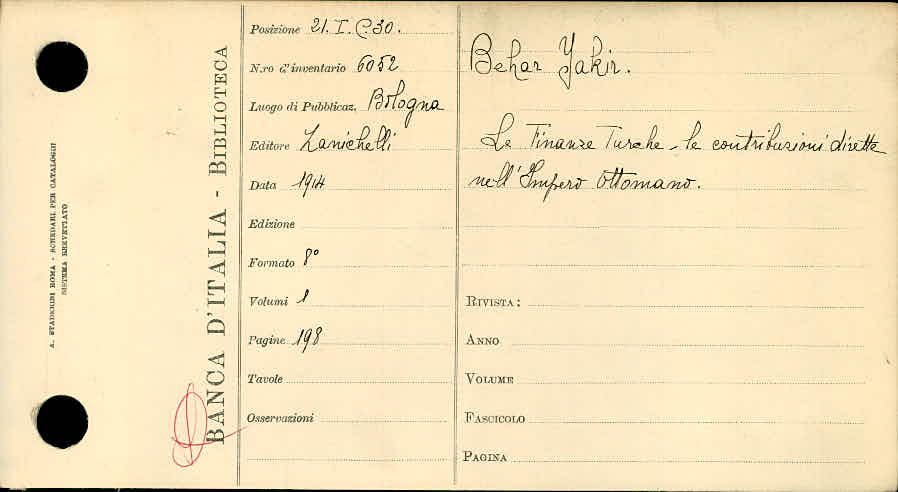 A. STADERINI ROMA - SCHEDARI PER CATALOGHI
SISTEMA BREVETTATO
BANCA D'ITALIA - BIBLIOTECA
Posizione 21. I. C. 30.
N.ro d'inventario 6052
Luogo di Pubblicaz. Bologna
Editore Zanichelli
Data 1914
Edizione
Formato 8°
Volumi 1
Pagine 198
Tavole
Osservazioni
Behar Yakir.
Le Finanze Turche - le contribuzioni dirette
nell'Impero Ottomano.
RIVISTA:
ANNO
VOLUME
FASCICOLO
PAGINA